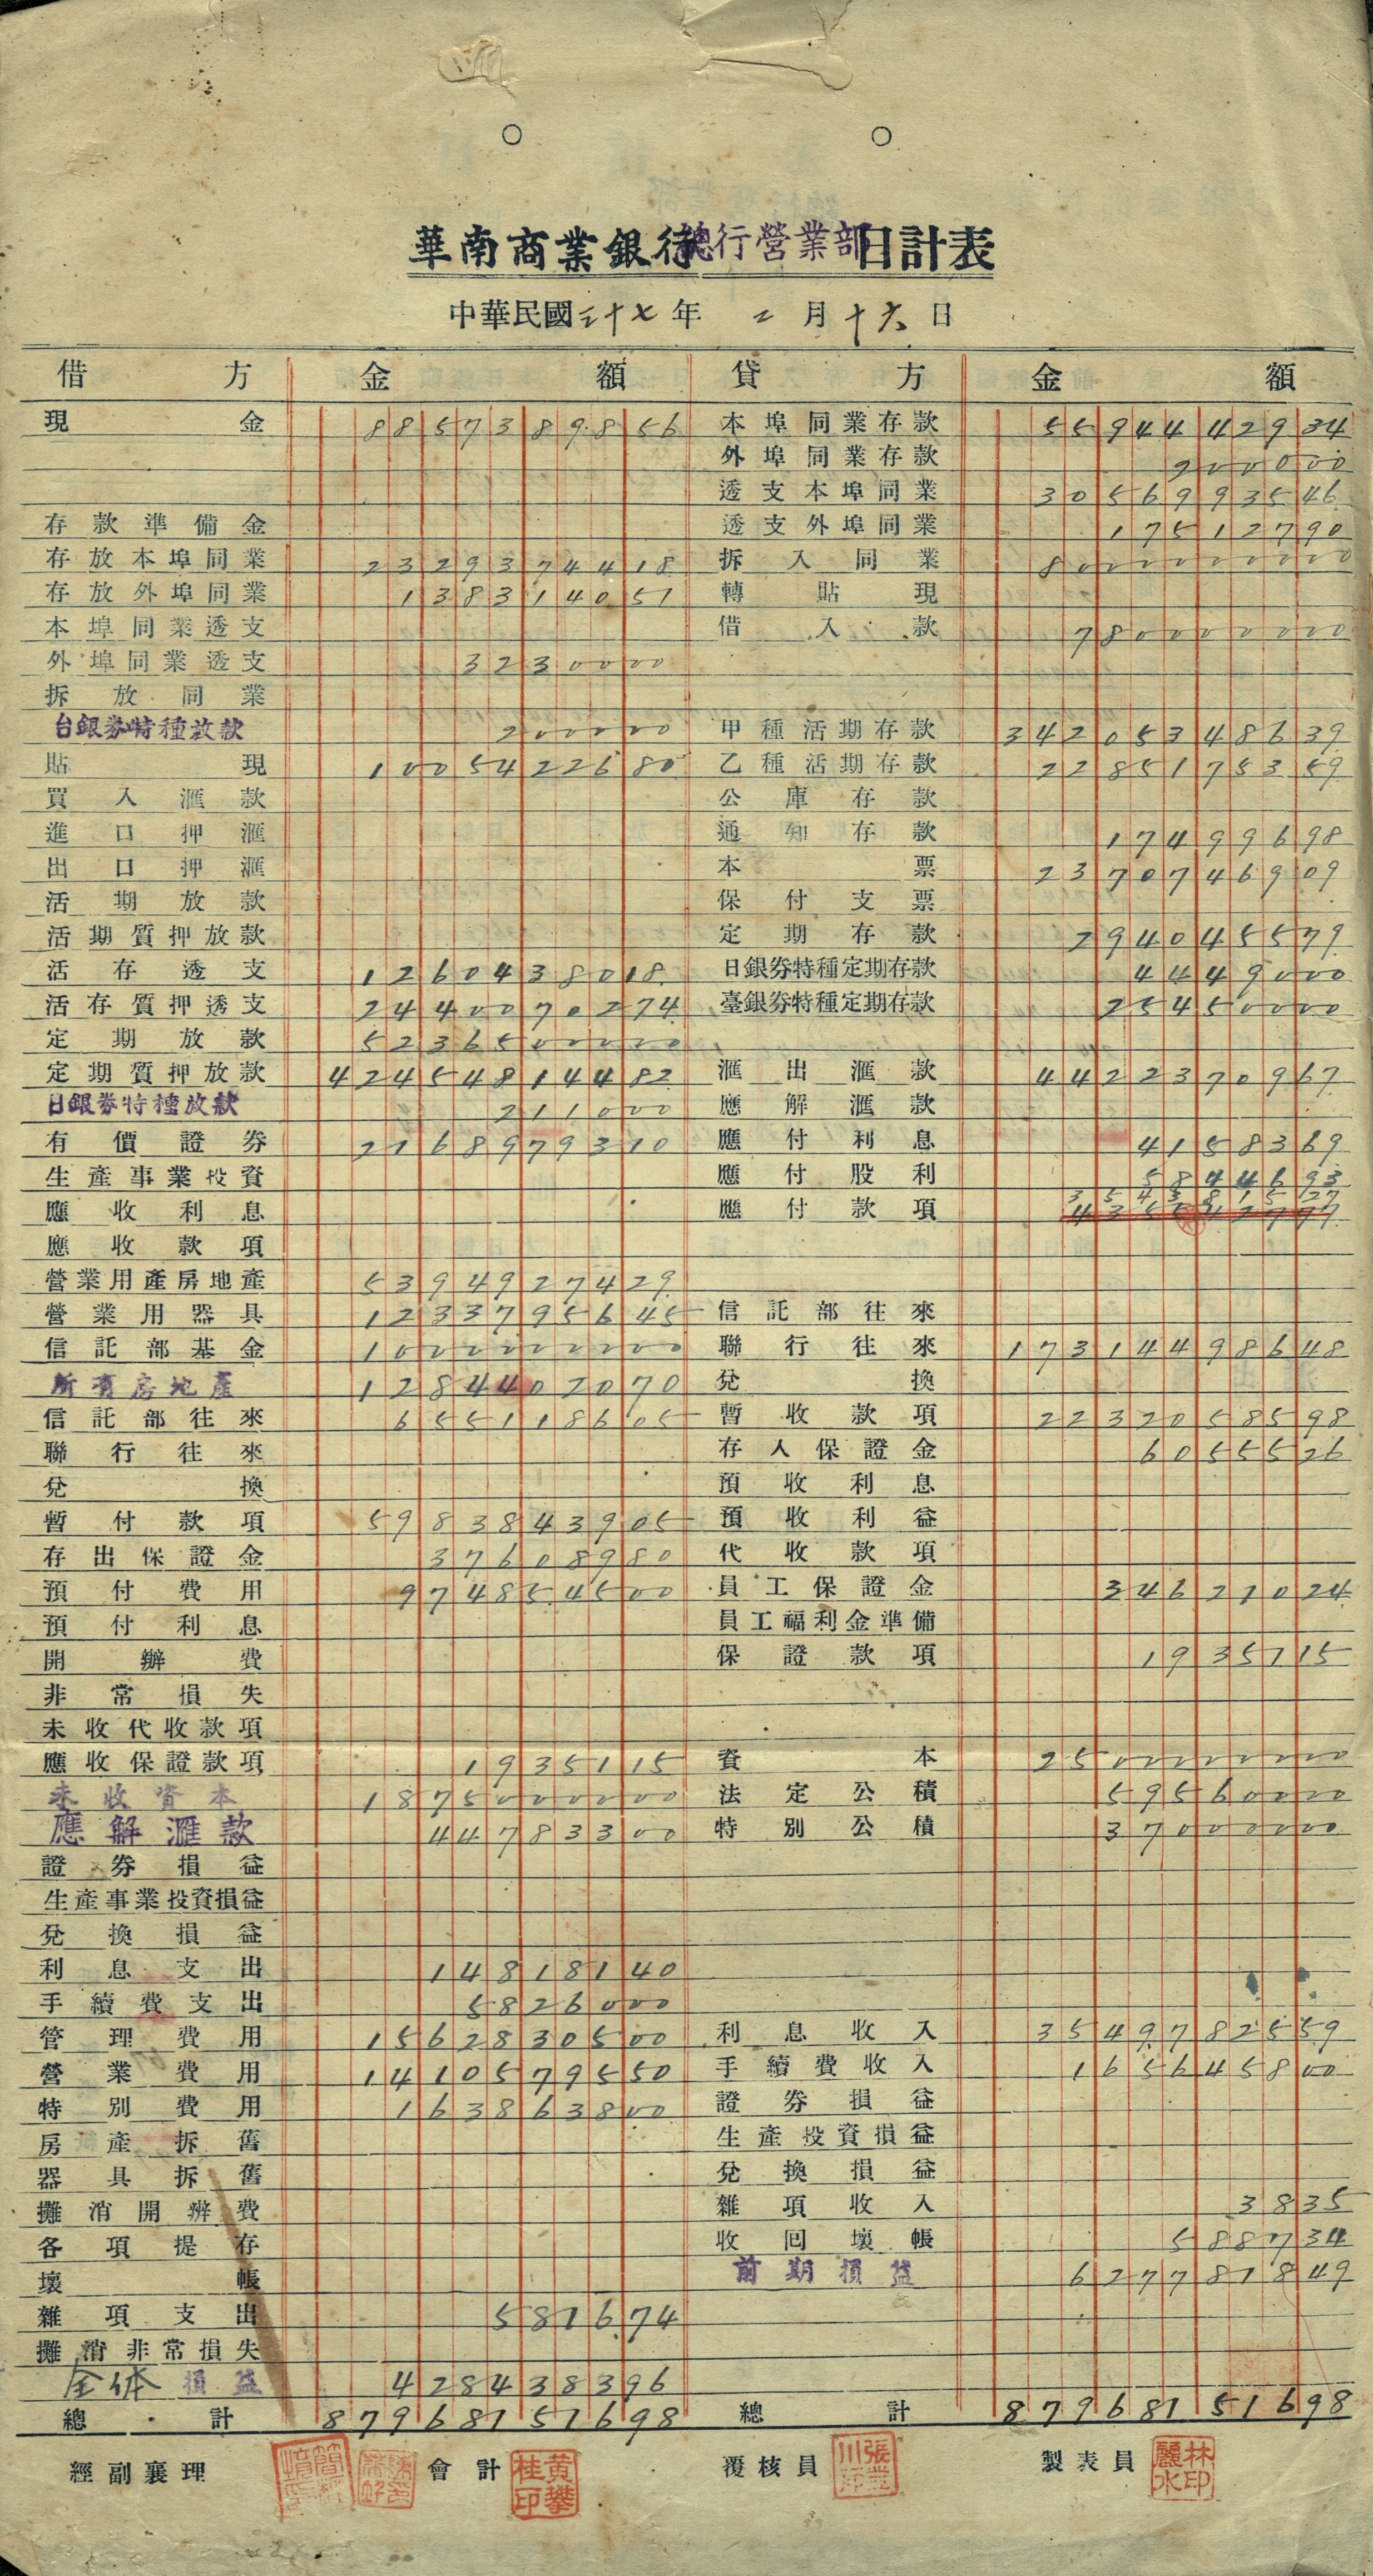 華南商業銀行總行營業部日計表
中華民國三十七年 二月十六日
借方 金額 貸方 金額
現金 8857389856 本埠同業存款 5594442934
外埠同業存款 900000
透支本埠同業 3056993546
存款準備金 透支外埠同業 17512790
存放本埠同業 2329374418 拆入同業 8000000000
存放外埠同業 138314057 轉貼現
本埠同業透支 借入款 780000000
外埠同業透支 3230000
拆放同業
台銀券特種放款 200000 甲種活期存款 34205348639
貼現 1005422680 乙種活期存款 2285175359
買入滙款 公庫存款
進口押滙 通知存款 17499698
出口押滙 本票 2370746909
活期放款 保付支票
活期質押放款 定期存款 294045579
活存透支 1260438018 日銀券特種定期存款 4449000
活存質押透支 2440070274 臺銀券特種定期存款 25450000
定期放款 5236500000
定期質押放款 42454814482 滙出滙款 4422370967
日銀券特種放款 211000 應解滙款
有價證券 2168979310 應付利息 4158369
生產事業投資 應付股利 5844693
應收利息 應付款項 354381527
應收款項
營業用產房地產 5394927429
營業用器具 1233795645 信託部往來
信託部基金 1000000000 聯行往來 17314498648
所有房地產 1284402070 兌換
信託部往來 655118605 暫收款項 2232058598
聯行往來 存入保證金 6055526
兌換 預收利息
暫付款項 5983843905 預收利益
存出保證金 37608980 代收款項
預付費用 974854500 員工保證金 34621024
預付利息 員工福利金準備
開辦費 保證款項 1935115
非常損失
未收代收款項
應收保證款項 1935115 資本 2500000000
未收資本 1875000000 法定公積 59560000
應解滙款 44783300 特別公積 37000000
證券損益
生產事業投資損益
兌換損益
利息支出 14818140
手續費支出 5826000
管理費用 1562830500 利息收入 3549782559
營業費用 1410579550 手續費收入 165645800
特別費用 163863800 證券損益
房產拆舊 生產投資損益
器具拆舊 兌換損益
攤消開辦費 雜項收入 3835
各項提存 收回壞帳 588734
壞帳 前期損益 627781849
雜項支出 581674
攤消非常損失
全体損益 428438396
總計 87968151698 總計 87968151698
經副襄理 會計 黃攀桂印 覆核員 製表員 林麗水印